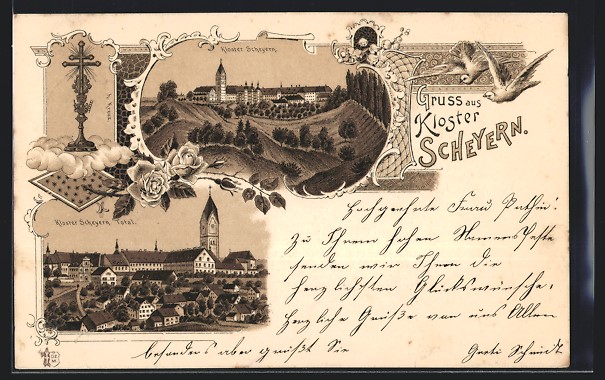 Kloster Scheyern.
h. Kreuz.
Gruss aus
Kloster
SCHEYERN.
Kloster Scheyern, Total.
Hochgeehrte Frau Pathin!
Zu Ihrem hohen Namensfeste
senden wir Ihnen die
herzlichsten Glückswünsche.
Herzliche Grüße von uns Allen
besonders aber grüßt Sie
Greti Schmidt